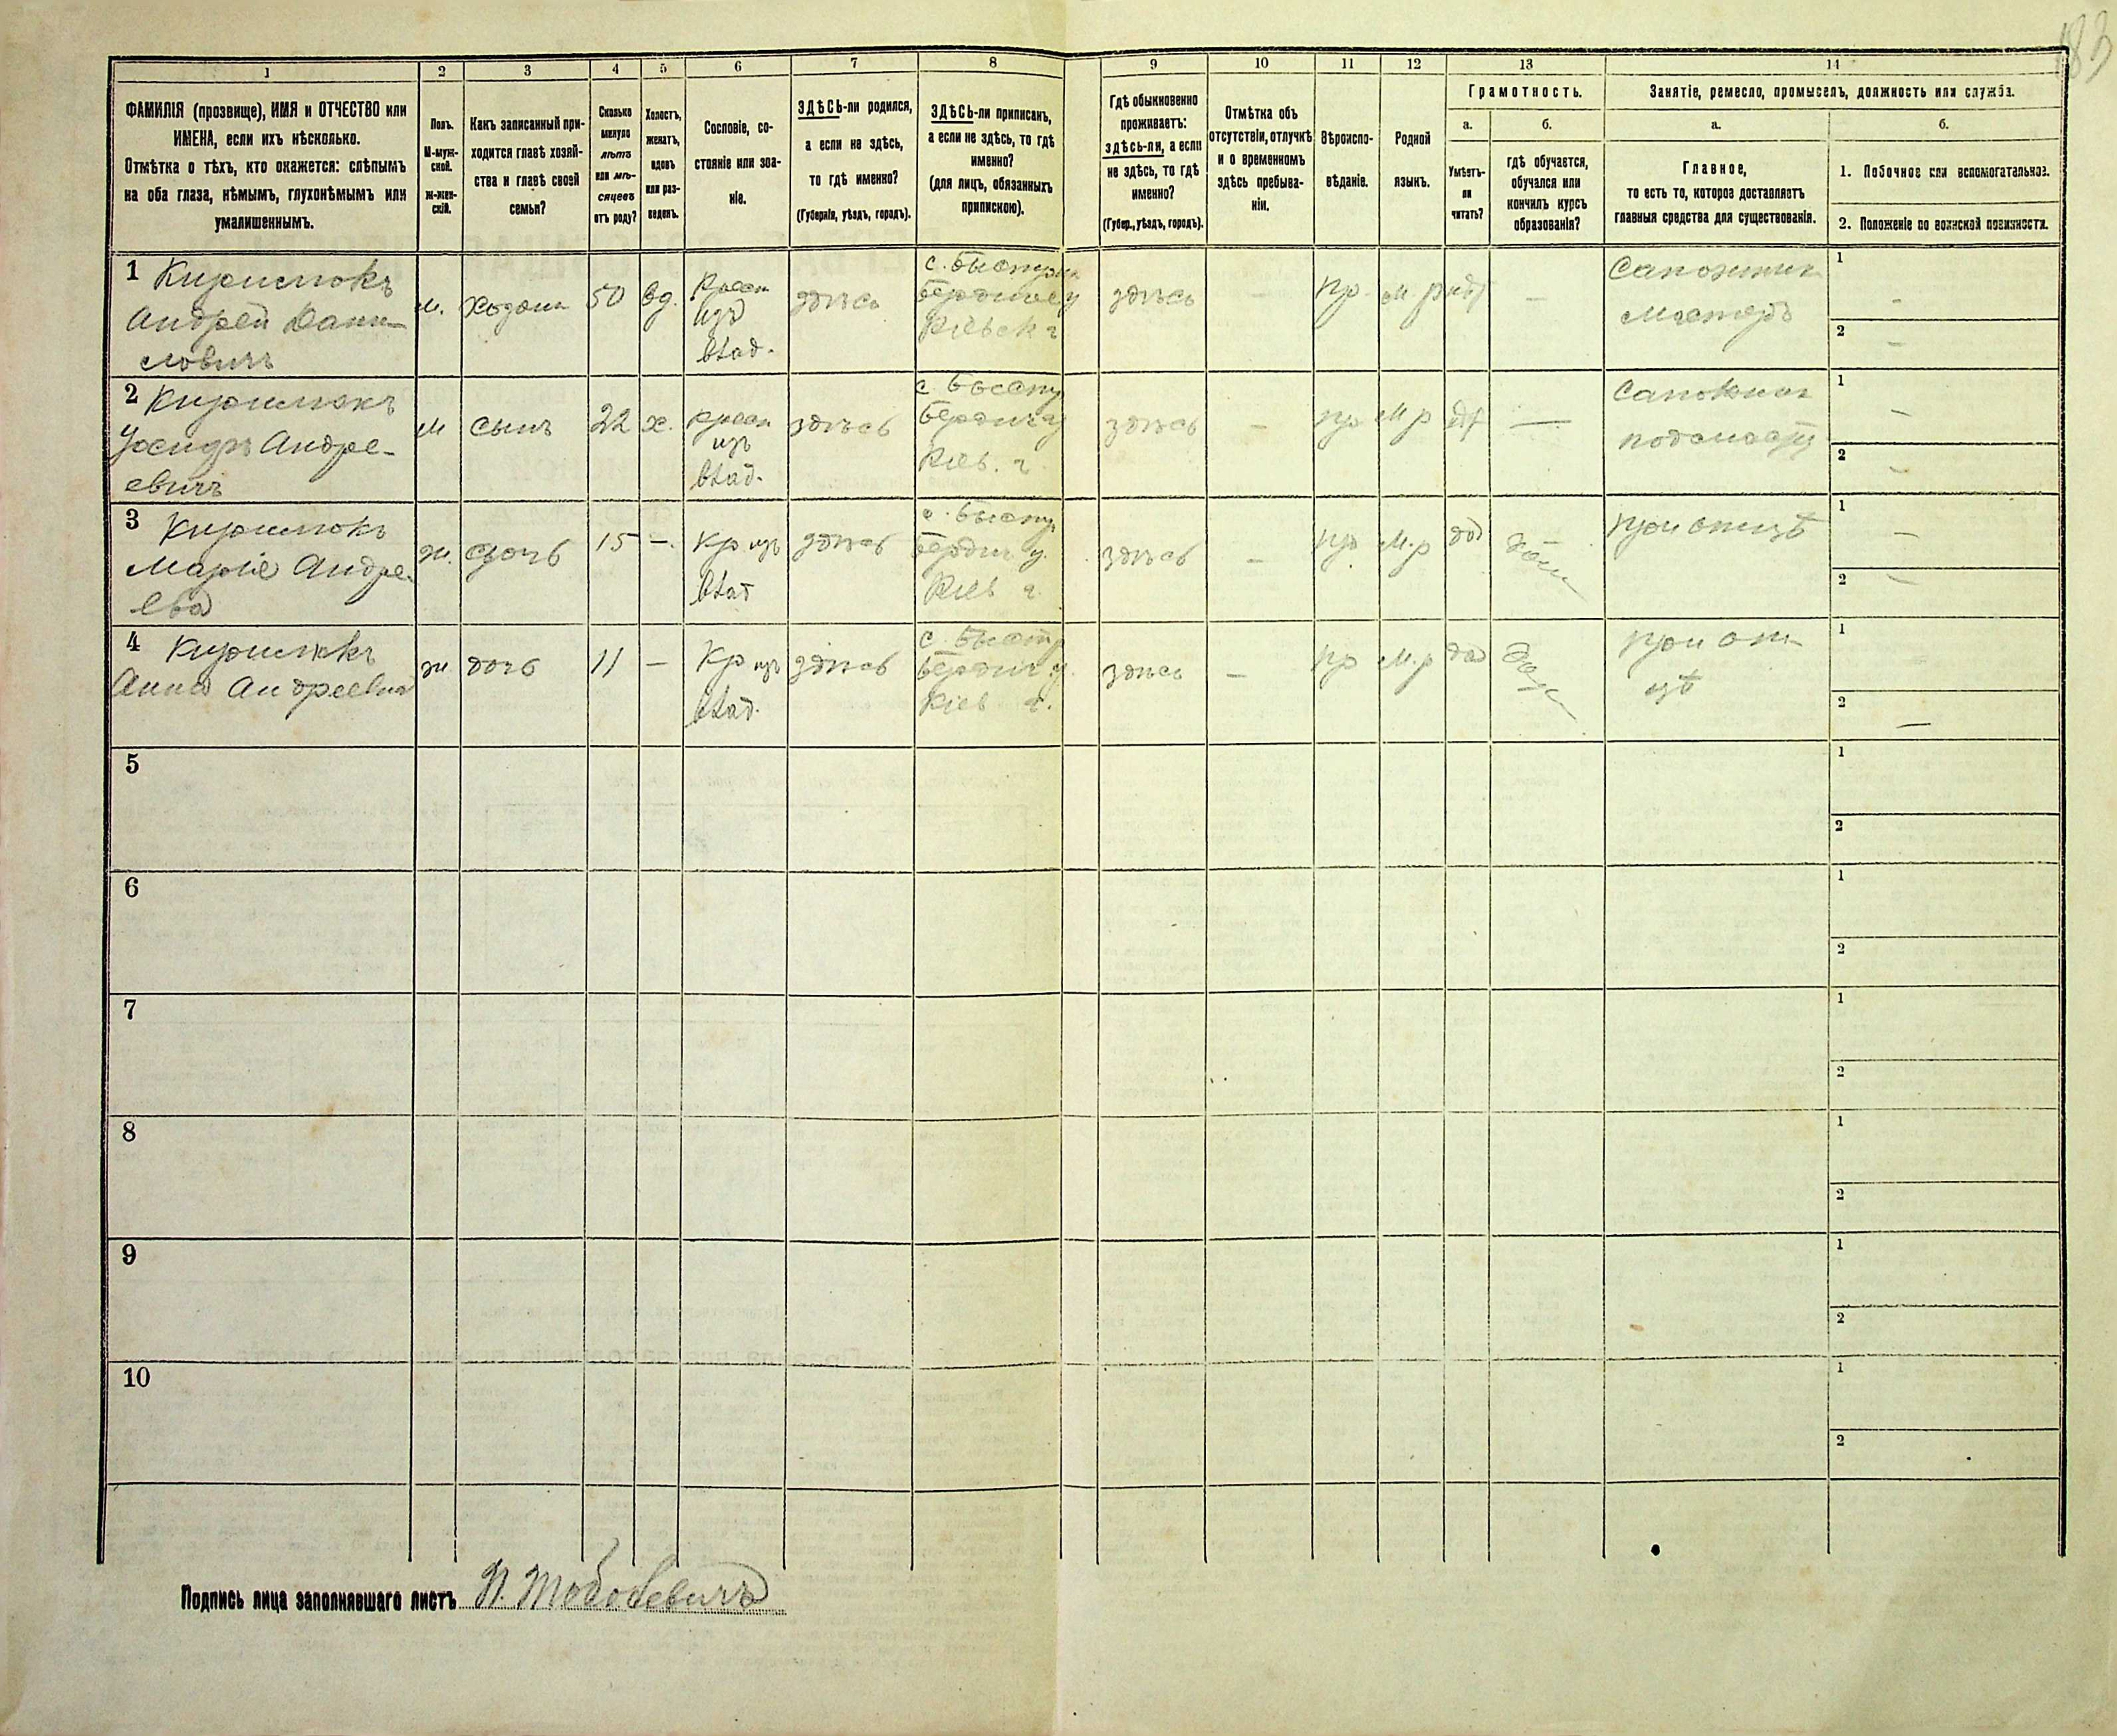 183
1
2
3
4
5
6
7
8
9
10
11
12
13
14
ФАМИЛІЯ (прозвище), ИМЯ и ОТЧЕСТВО или
ИМЕНА, если ихъ нѣсколько.
Отмѣтка о тѣхъ, кто окажется: слѣпымъ
на оба глаза, нѣмымъ, глухонѣмымъ или
умалишеннымъ.
Полъ.
М-муж-
ской.
ж-жен-
скій.
Какъ записанный при-
ходится главѣ хозяй-
ства и главѣ своей
семьи?
Сколько
минуло
лѣтъ
или мѣ-
сяцевъ
отъ роду?
Холостъ,
женатъ,
вдовъ
или раз-
веденъ.
Сословіе, со-
стояніе или зва-
ніе.
ЗДѢСЬ-ли родился,
а если не здѣсь,
то гдѣ именно?
(Губернія, уѣздъ, городъ).
ЗДѢСЬ-ли приписанъ,
а если не здѣсь, то гдѣ
именно?
(для лицъ, обязанныхъ
припискою).
Гдѣ обыкновенно
проживаетъ:
здѣсь-ли, а если
не здѣсь, то гдѣ
именно?
(Губер., уѣздъ, городъ).
Отмѣтка объ
отсутствіи, отлучкѣ
и о временномъ
здѣсь пребыва-
ніи.
Вѣроиспо-
вѣданіе.
Родной
языкъ.
Грамотность.
а.
Умѣетъ-
ли
читать?
б.
гдѣ обучается,
обучался или
кончилъ курсъ
образованія?
Занятіе, ремесло, промыселъ, должность или служба.
а.
Главное,
то есть то, которое доставляетъ
главныя средства для существованія.
б.
1. Побочное или вспомогательное.
2. Положеніе по воинской повинности.
1 Кирилюкъ
Андрей Дани-
ловичъ
м.
хозяин
50
вд.
Крест
изъ
влад.
здѣсь
с. Быстрик
Бердичев у
Кіевск г
здѣсь
–
пр.
м р
нѣт
–
Сапожник
мастеръ
1
–
2
–
2 Кирилюкъ
Іосифъ Андре-
евичъ
м
сынъ
22
х.
крест
изъ
влад.
здѣсь
с. Быстр
Бердич у
Кіев. г
здѣсь
–
пр
м р
—
Сапожник
подмаст
1
–
2
–
3 Кирилюкъ
Марія Андре-
ева
ж.
дочь
15
–.
Кр изъ
влад
здѣсь
с. Быстр
Бердич у.
Кіев г.
здѣсь
–
пр.
м.р
да
при отцѣ
1
–
2
–
4 Кирилюкъ
Анна Андреевна
ж
дочь
11
–
Кр изъ
влад.
здѣсь
с. Быстр
Бердич у.
Кіев г.
здѣсь
–
пр
м.р
да
при от-
цѣ
1
2
–
5
1
2
6
1
2
7
1
2
8
1
2
9
1
2
10
1
2
Подпись лица заполнявшаго листъ